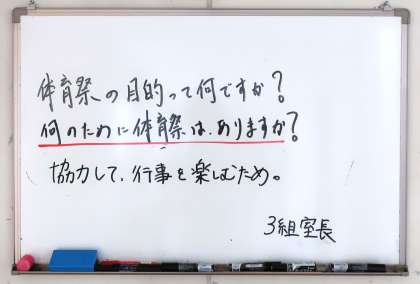 体育祭の目的って何ですか?
何のために体育祭は、ありますか?
協力して、行事を楽しむため。
3組室長